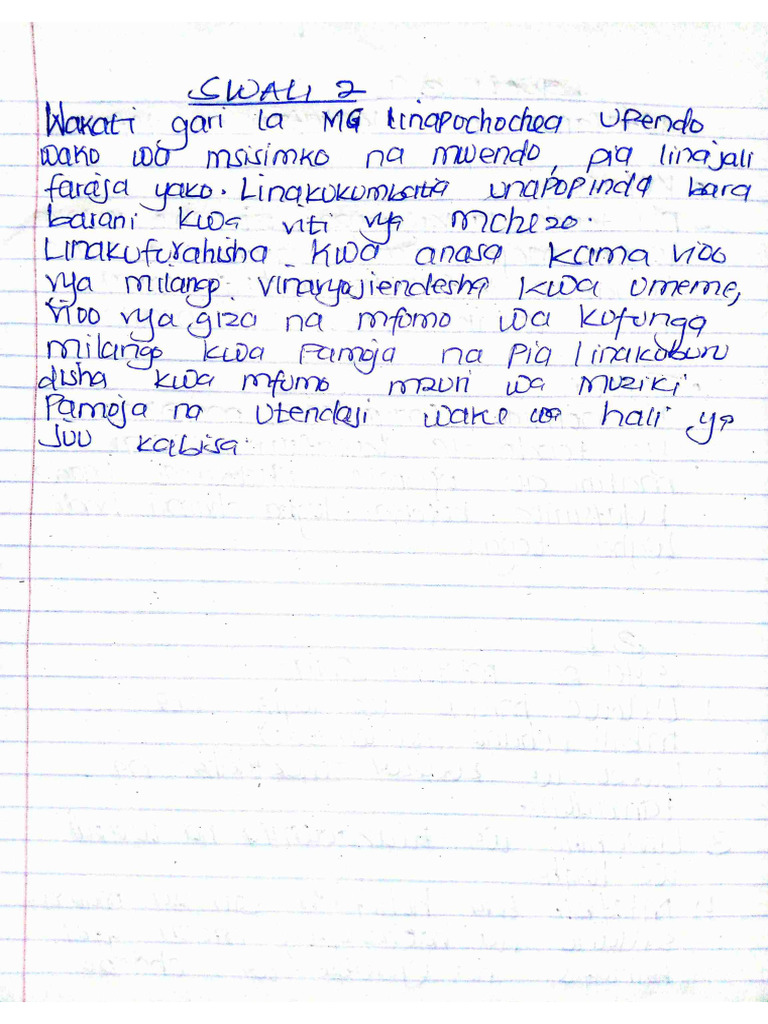 SWALI 2
Wakati gari la MG linapochochea upendo
wako wa msisimko na mwendo, pia linajali
faraja yako. Linakukumbatia unapopinda bara
barani kwa viti vya mchezo.
Linakufurahisha kwa anasa kama vioo
vya milango vinavyojiendesha kwa umeme,
vioo vya giza na mfumo wa kufunga
milango kwa pamoja na pia linakuburu
disha kwa mfumo mzuri wa muziki
Pamoja na utendaji wake wa hali ya
juu kabisa.